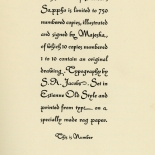 Sappho is limited to 750
numbered copies, illustrated
and signed by Majeska,
of which 10 copies numbered
1 to 10 contain an original
drawing. Typography by
S. A. Jacobs. Set in
Estienne Old Style and
printed from type on a
specially made rag paper.
This is Number